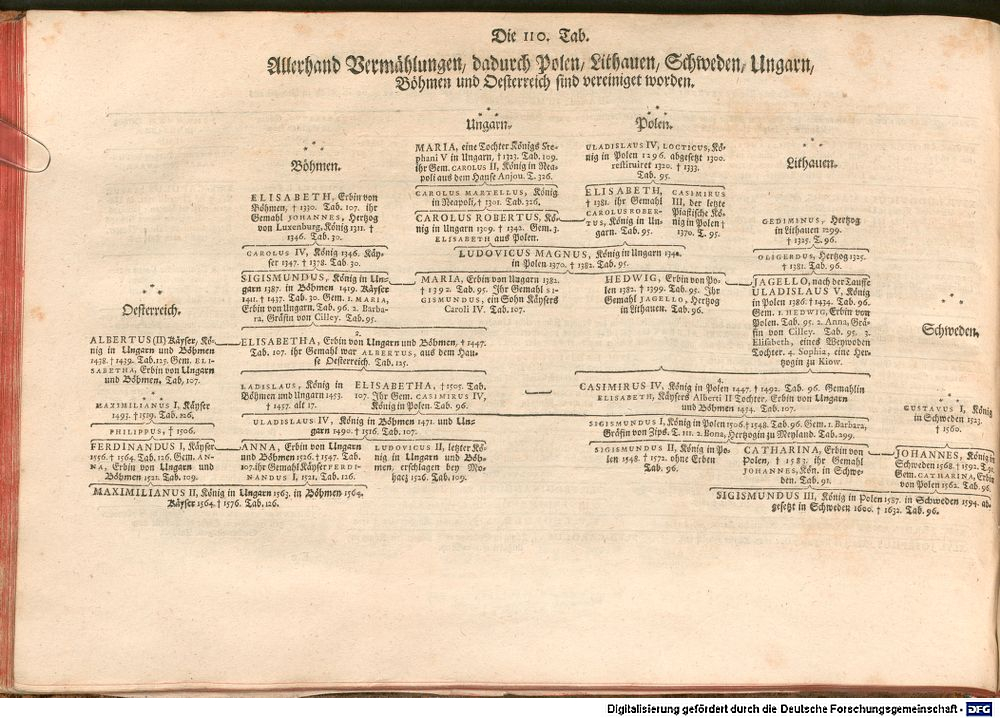 Die 110. Tab.
Allerhand Vermählungen/ dadurch Polen/ Lithauen/ Schweden/ Ungarn/
Böhmen und Oesterreich sind vereiniget worden.
Ungarn.
MARIA, eine Tochter Königs Ste-
phani V in Ungarn, † 1323. Tab. 109.
ihr Gem. CAROLUS II, König in Nea-
poli aus dem Hause Anjou. T. 326.
CAROLUS MARTELLUS, König
in Neapoli, † 1301. Tab. 326.
CAROLUS ROBERTUS, Kö-
nig in Ungarn 1309. † 1342. Gem. 3.
ELISABETH aus Polen.
Polen.
ULADISLAUS IV, LOCTICUS, Kö-
nig in Polen 1296. abgesetzt 1300.
restituiret 1320. † 1333.
Tab. 95.
ELISABETH,
† 1381. ihr Gemahl
CAROLUS ROBER-
TUS, König in Un-
garn. Tab. 95.
CASIMIRUS
III, der letzte
Piastische Kö-
nig in Polen †
1370. T. 95.
LUDOVICUS MAGNUS, König in Ungarn 1342.
in Polen 1370. † 1382. Tab. 95.
Böhmen.
ELISABETH, Erbin von
Böhmen, † 1330. Tab. 107. ihr
Gemahl JOHANNES, Hertzog
von Luxenburg, König 1311. †
1346. Tab. 30.
CAROLUS IV, König 1346. Käy-
ser 1347. † 1378. Tab. 30.
SIGISMUNDUS, König in Un-
garn 1387. in Böhmen 1419. Käyser
1411. † 1437. Tab. 30. Gem. 1. MARIA,
Erbin von Ungarn. Tab. 96. 2. Barba-
ra, Gräfin von Cilley. Tab. 95.
MARIA, Erbin von Ungarn 1382.
† 1392. Tab. 95. Ihr Gemahl SI-
GISMUNDUS, ein Sohn Käysers
Caroli IV. Tab. 107.
HEDWIG, Erbin von Po-
len 1382. † 1399. Tab. 95. Ihr
Gemahl JAGELLO, Hertzog
in Lithauen. Tab. 96.
Lithauen.
GEDIMINUS, Hertzog
in Lithauen 1299.
† 1325. T. 96.
OLIGERDUS, Hertzog 1325.
† 1381. Tab. 96.
JAGELLO, nach der Tauffe
ULADISLAUS V, König
in Polen 1386. † 1434. Tab. 96.
Gem. 1. HEDWIG, Erbin von
Polen. Tab. 95. 2. Anna, Grä-
fin von Cilley. Tab. 95. 3.
Elisabeth, eines Weywoden
Tochter. 4. Sophia, eine Her-
tzogin zu Kiow.
Oesterreich.
ALBERTUS (II) Käyser, Kö-
nig in Ungarn und Böhmen
1438. † 1439. Tab. 125. Gem. ELI-
SABETHA, Erbin von Ungarn
und Böhmen. Tab. 107.
2.
ELISABETHA, Erbin von Ungarn und Böhmen, † 1447.
Tab. 107. ihr Gemahl war ALBERTUS, aus dem Hau-
se Oesterreich. Tab. 125.
LADISLAUS, König in
Böhmen und Ungarn 1453.
† 1457. alt 17.
ELISABETHA, † 1505. Tab.
107. Ihr Gem. CASIMIRUS IV,
König in Polen. Tab. 96.
4.
CASIMIRUS IV, König in Polen 1447. † 1492. Tab. 96. Gemahlin
ELISABETH, Käysers Alberti II Tochter, Erbin von Ungarn
und Böhmen 1454. Tab. 107.
MAXIMILIANUS I, Käyser
1493. † 1519. Tab. 126.
PHILIPPUS, † 1506.
FERDINANDUS I, Käyser
1556. † 1564. Tab. 126. Gem. AN-
NA, Erbin von Ungarn und
Böhmen 1521. Tab. 109.
ULADISLAUS IV, König in Böhmen 1471. und Un-
garn 1490. † 1516. Tab. 107.
ANNA, Erbin von Ungarn
und Böhmen 1526. † 1547. Tab.
107. ihr Gemahl Käyser FERDI-
NANDUS I, 1521. Tab. 126.
LUDOVICUS II, letzter Kö-
nig in Ungarn und Böh-
men, erschlagen bey Mo-
hacz 1526. Tab. 109.
MAXIMILIANUS II, König in Ungarn 1563. in Böhmen 1564.
Käyser 1564. † 1576. Tab. 126.
SIGISMUNDUS I, König in Polen 1506. † 1548. Tab. 96. Gem. 1. Barbara,
Gräfin von Zips. T. 111. 2. Bona, Hertzogin zu Meyland. Tab. 299.
SIGISMUNDUS II, König in Po-
len 1548. † 1572. ohne Erben
Tab. 96.
CATHARINA, Erbin von
Polen, † 1583. ihr Gemahl
JOHANNES, Kön. in Schwe-
den. Tab. 91.
Schweden.
GUSTAVUS I, König
in Schweden 1523.
† 1560.
JOHANNES, König in
Schweden 1568. † 1592. T. 91.
Gem. CATHARINA, Erbin
von Polen 1562. Tab. 96.
SIGISMUNDUS III, König in Polen 1587. in Schweden 1594. ab-
gesetzt in Schweden 1600. † 1632. Tab. 96.
Digitalisierung gefördert durch die Deutsche Forschungsgemeinschaft - DFG